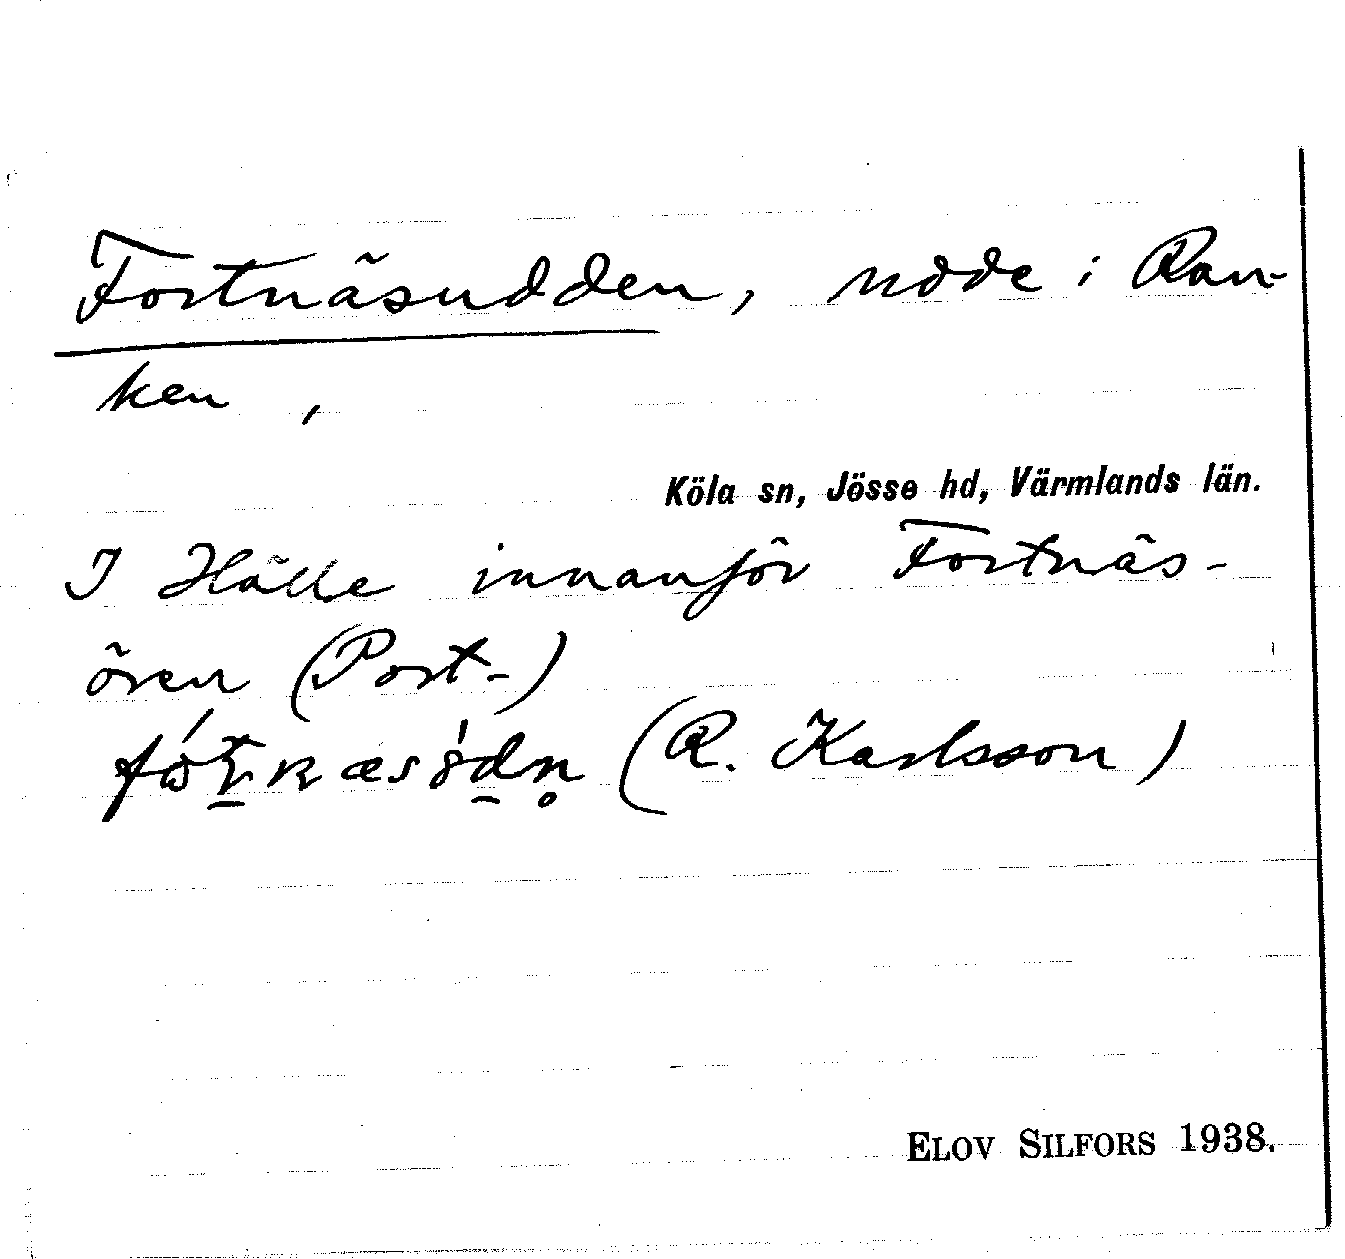 Fortnäsudden, udde i Ran-
ken,
Köla sn, Jösse hd, Värmlands län.
I Hålle innanför Fortnäs-
ören (Port-)
(R. Karlsson)
ELOV SILFORS 1938.